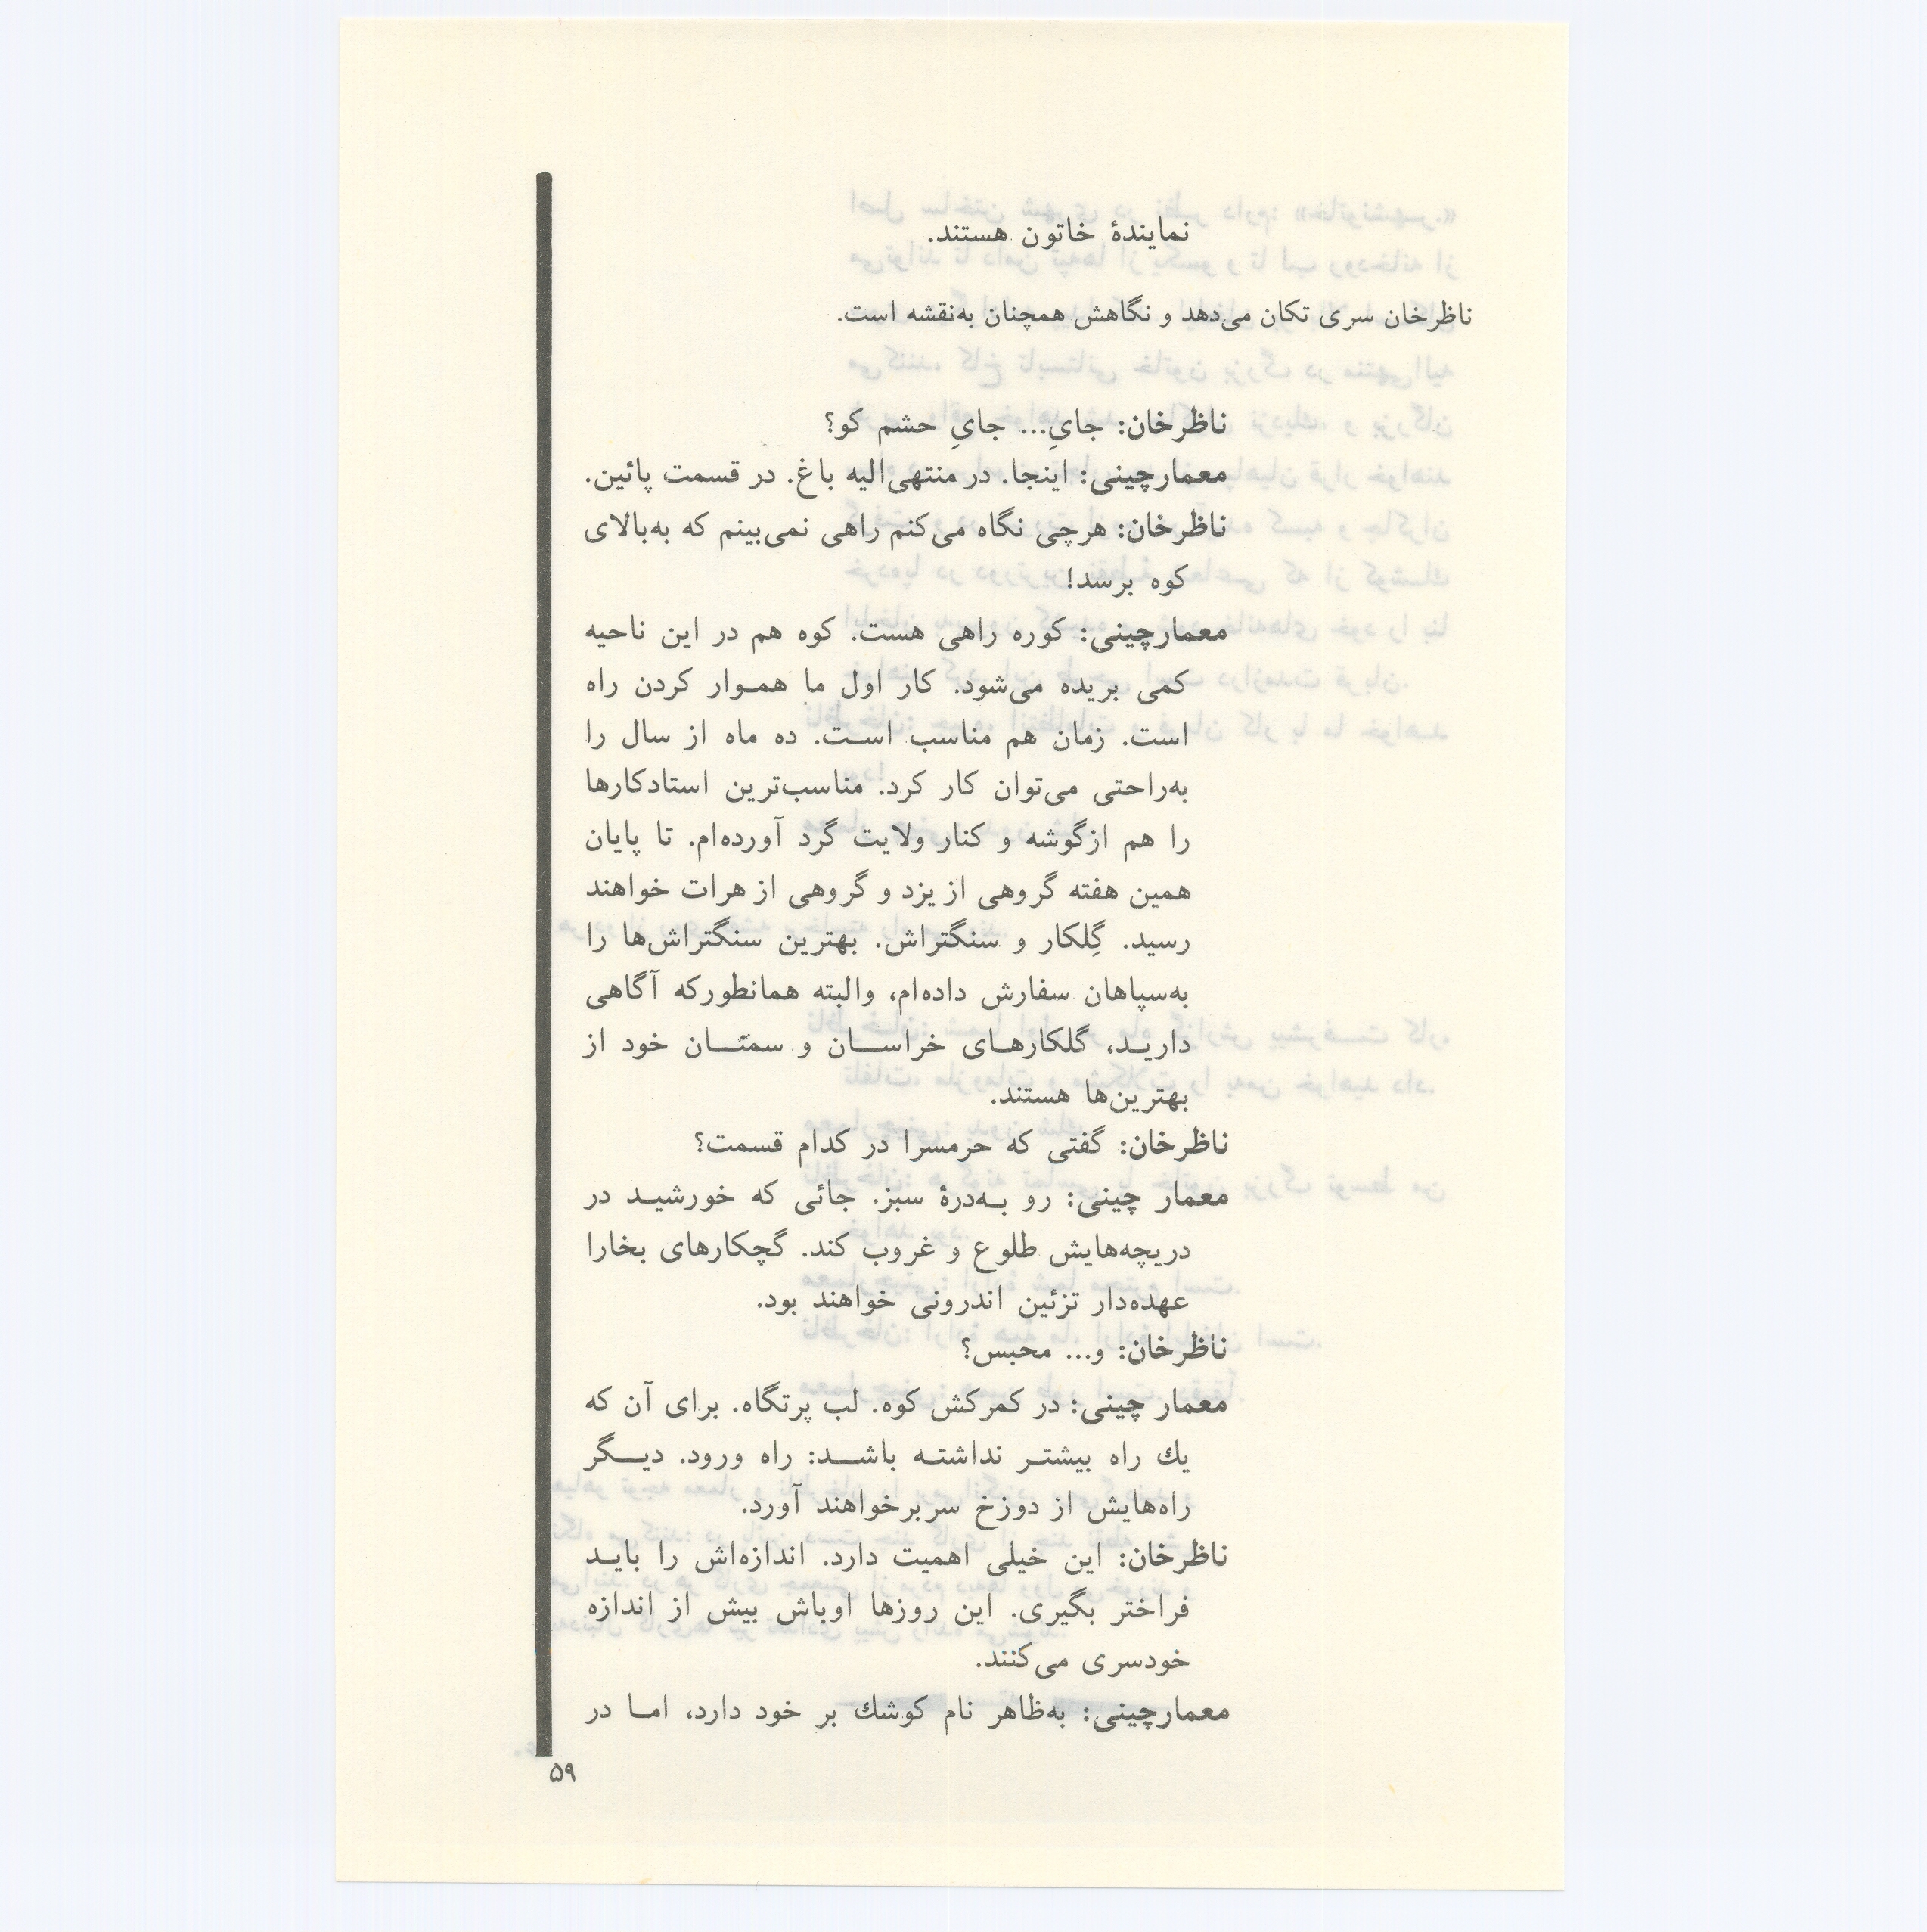 نمایندهٔ خاتون هستند.
ناظرخان سری تکان می‌دهد و نگاهش همچنان به‌نقشه است.
ناظرخان: جایِ... جایِ حشم کو؟
معمارچینی: اینجا. در منتهی‌الیه باغ. در قسمت پائین.
ناظرخان: هرچی نگاه می‌کنم راهی نمی‌بینم که به‌بالای
کوه برسد!
معمارچینی: کوره راهی هست. کوه هم در این ناحیه
کمی بریده می‌شود. کار اول ما همـوار کردن راه
است. زمان هم مناسب اسـت. ده ماه از سال را
به‌راحتی می‌توان کار کرد. مناسب‌ترین استادکارها
را هم ازگوشه و کنار ولایت گرد آورده‌ام. تا پایان
همین هفته گروهی از یزد و گروهی از هرات خواهند
رسید. گِلکار و سنگتراش. بهترین سنگتراش‌ها را
به‌سپاهان سفارش داده‌ام، والبته همانطورکه آگاهی
داریـد، گلکارهـای خراســان و سمنّــان خود از
بهترین‌ها هستند.
ناظرخان: گفتی که حرمسرا در کدام قسمت؟
معمار چینی: رو بـه‌درهٔ سبز. جائی که خورشیـد در
دریچه‌هایش طلوع و غروب کند. گچکارهای بخارا
عهده‌دار تزئین اندرونی خواهند بود.
ناظرخان: و... محبس؟
معمار چینی: در کمرکش کوه. لب پرتگاه. برای آن که
یك راه بیشتـر نداشتـه باشــد: راه ورود. دیــگر
راه‌هایش از دوزخ سربرخواهند آورد.
ناظرخان: این خیلی اهمیت دارد. اندازه‌اش را بایـد
فراختر بگیری. این روزها اوباش بیش از اندازه
خودسری می‌کنند.
معمارچینی: به‌ظاهر نام کوشك بر خود دارد، امـا در
۵۹